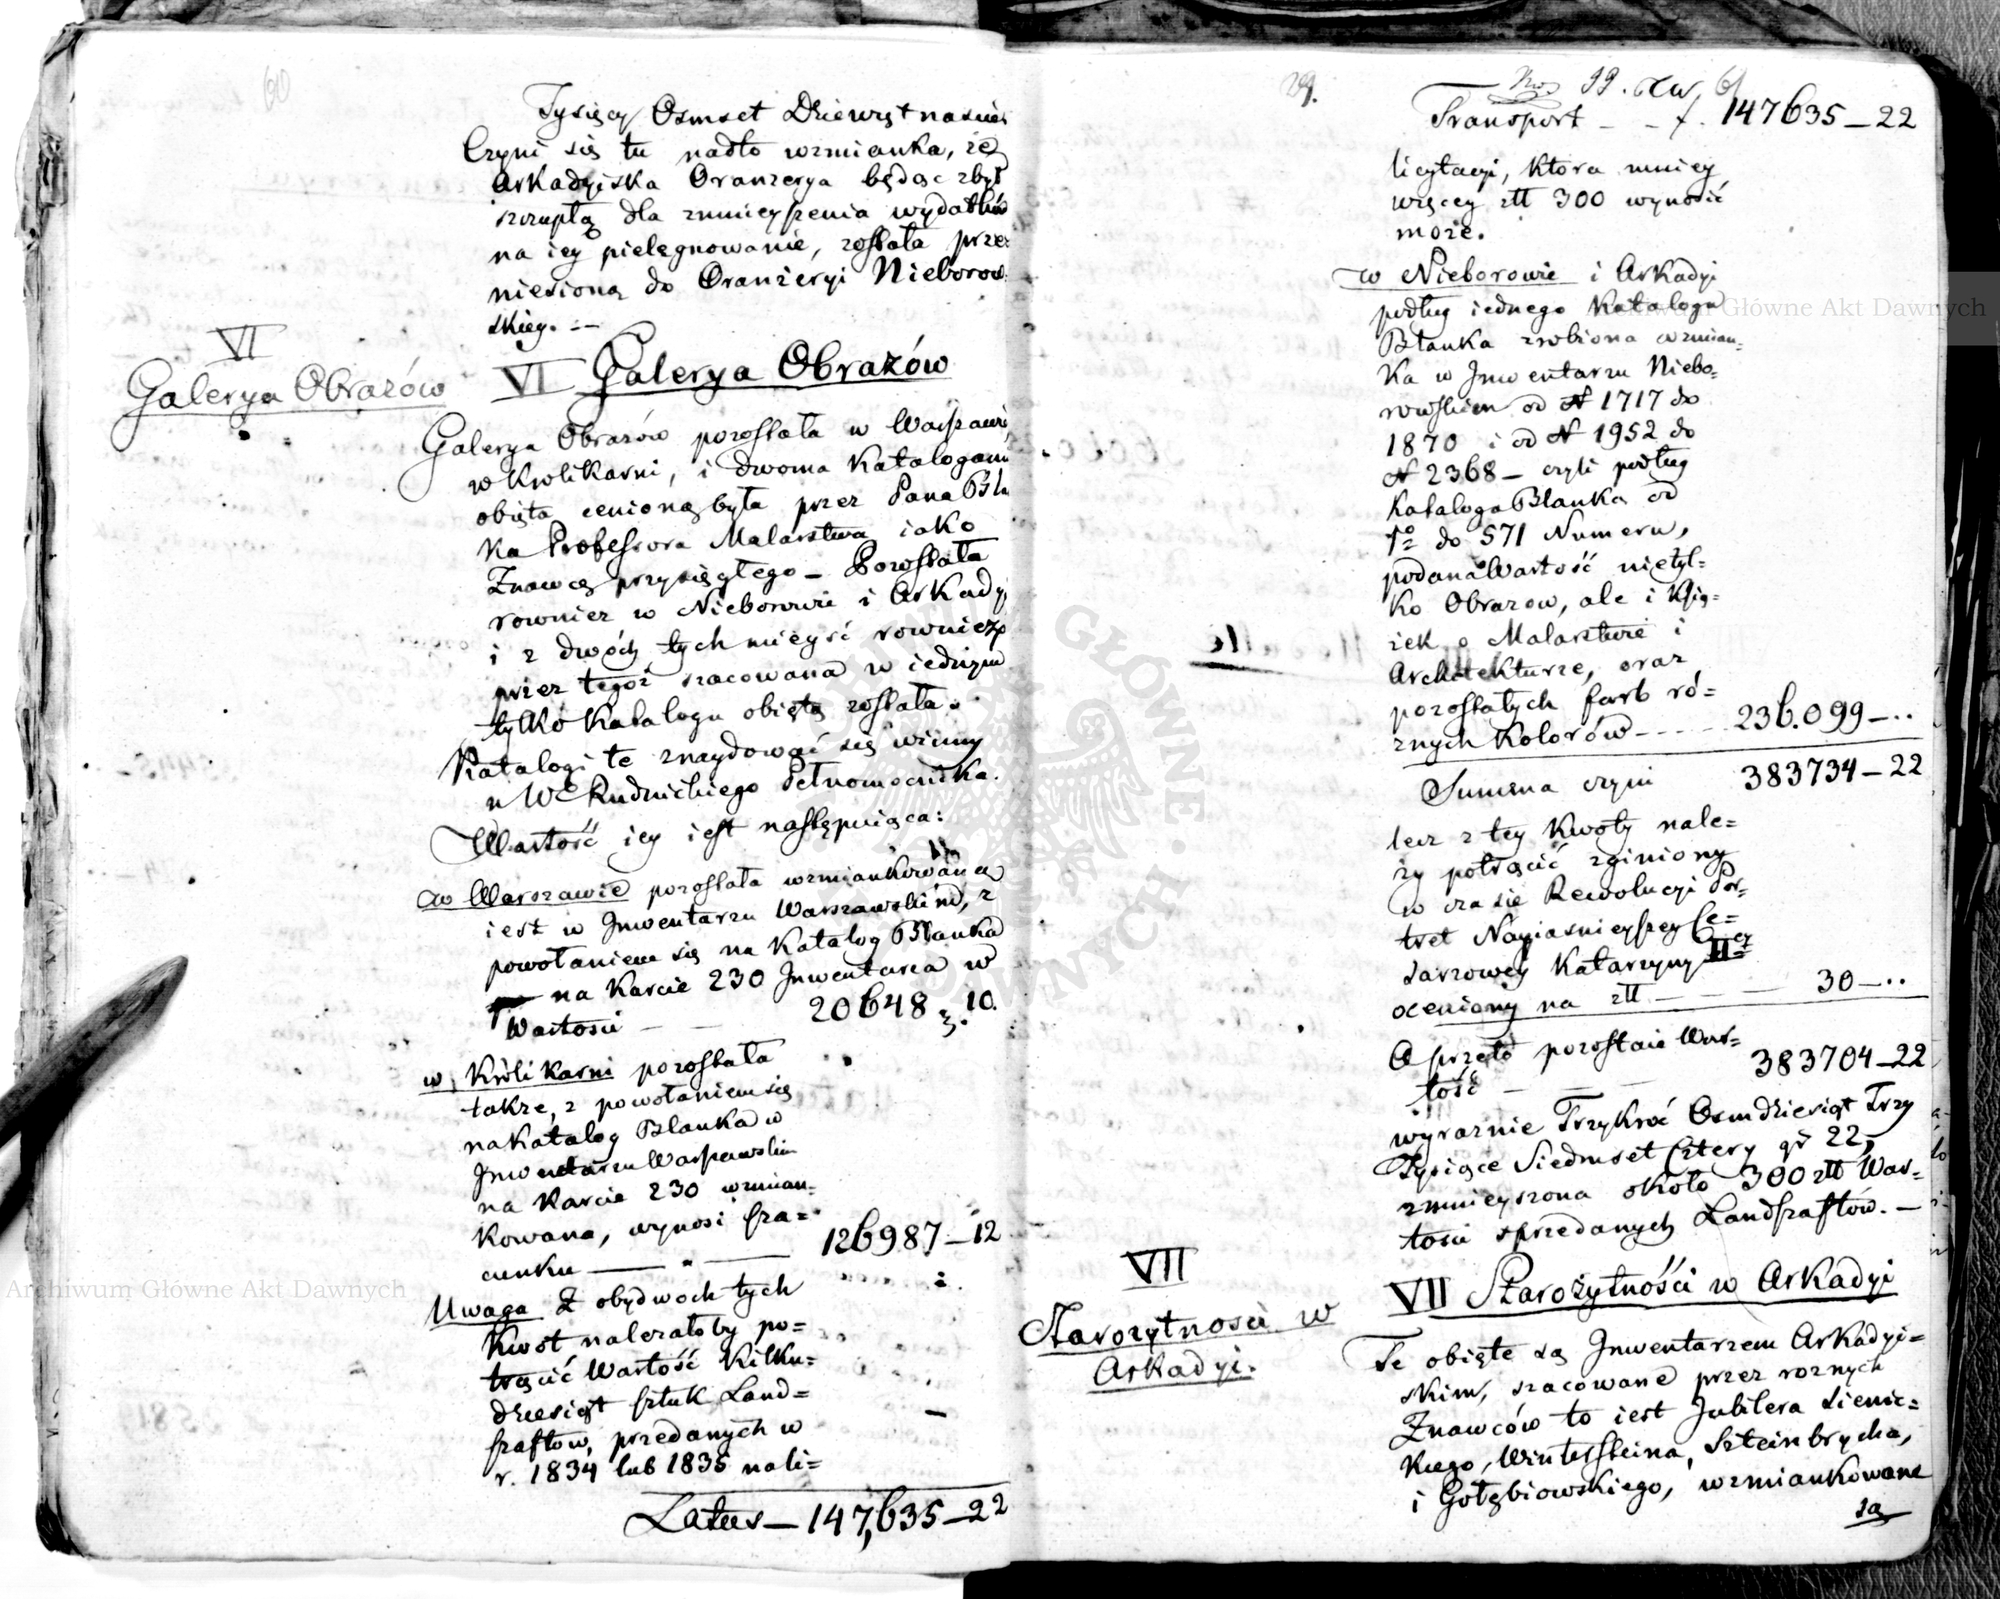 60
Tysięcy Osmset Dziewiętnaście
Czyni się tu nadto wzmianka, że
Arkadyiska Oranzerya będąc zbyt
szczupłą dla zmnieyszenia wydatków
na iey pielęgnowanie, została prze-
niesioną do Oranżeryi Nieborow-
skiey. —
VI
Galerya Obrazów
VI Galerya Obrazów
Galerya Obrazów pozostała w Warszawie,
w Krolikarni, i dwoma Katalogami
obięta cenioną była przez Pana Bla
ka Professora Malarstwa, iako
Znawcę przysięgłego — Pozostała
rownież w Nieborowie i Arkadyi
i z dwóch tych mieysć rownież
przez tegoż szacowana w iednym
tylko Katalogu obiętą została.
Katalogi te znaydować się winny
u W Rudnickiego Pełnomocnika.
Wartość iey iest następuiąca:
w Warszawie pozostała wzmiankowana
iest w Inwentarzu Warszawskim, z
powołaniem się na Katalog Blanka
na Karcie 230 Inwentarza w
Wartości — — 20648 10.
w Królikarni pozostała
także, z powołaniem się
na Katalog Blanka w
Inwentarzu Warszawskim
na Karcie 230 wzmian-
kowana, wynosi sza-
cunku — " — 126987—12
Uwaga Z obydwoch tych
Kwot należałoby po=
trącić Wartość Kilku=
dziesiąt sztuk Land=
szaftów, przedanych w
r. 1834 lub 1835 na li=
Latus — 147,635—22
29.
Transport — — f. 147635—22
licytacyi, która mniey
więcey złł 300 wynosić
może.
w Nieborowie i Arkadyi
podług iednego Katalogu
Blanka zrobiona wzmian=
ka w Inwentarzu Niebo=
rowskim od N 1717 do
1870 i od N 1952 do
N 2368 — czyli podług
Kataloga Blanka od
1o do 571 Numeru,
podana Wartość nietyl=
ko Obrazow, ale i Ksią=
żek o Malarstwie i
Architekturze, oraz
pozostałych farb ró=
żnych Kolorów — — — 236.099—..
Summa czyni 383734—22
lecz z tey Kwoty nale=
ży potrącić zginiony
w czasie Rewolucyi Por=
tret Nayiasnieyszey Ce=
sarzowey Katarzyny II
oceniony na złł — — — 30—..
A przeto pozostaie War=
tość — — — 383704—22
wyraznie Trzykroć Osmdziesiąt Trzy
Tysiące Siedmset Cztery gr 22,
zmnieyszona około 300 złł War=
tości sprzedanych Landszaftów. —
VII
Starozytności w
Arkadyi.
VII Starożytności w Arkadyi
Te obięte są Inwentarzem Arkadyi=
skim, szacowane przez roznych
Znawców to iest Jubilera Sienic=
kiego, Wintersteina, Szteinbrycha,
i Gołębiowskiego, wzmiankowane
są
Archiwum Główne Akt Dawnych
Archiwum Główne Akt Dawnych
ARCHIWUM GŁÓWNE AKT DAWNYCH